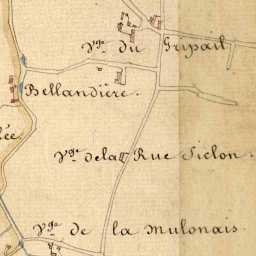 Vge du Gripail
Bellandière.
lée
Vge de la Rue Siclon.
Vge de la Mulonais.